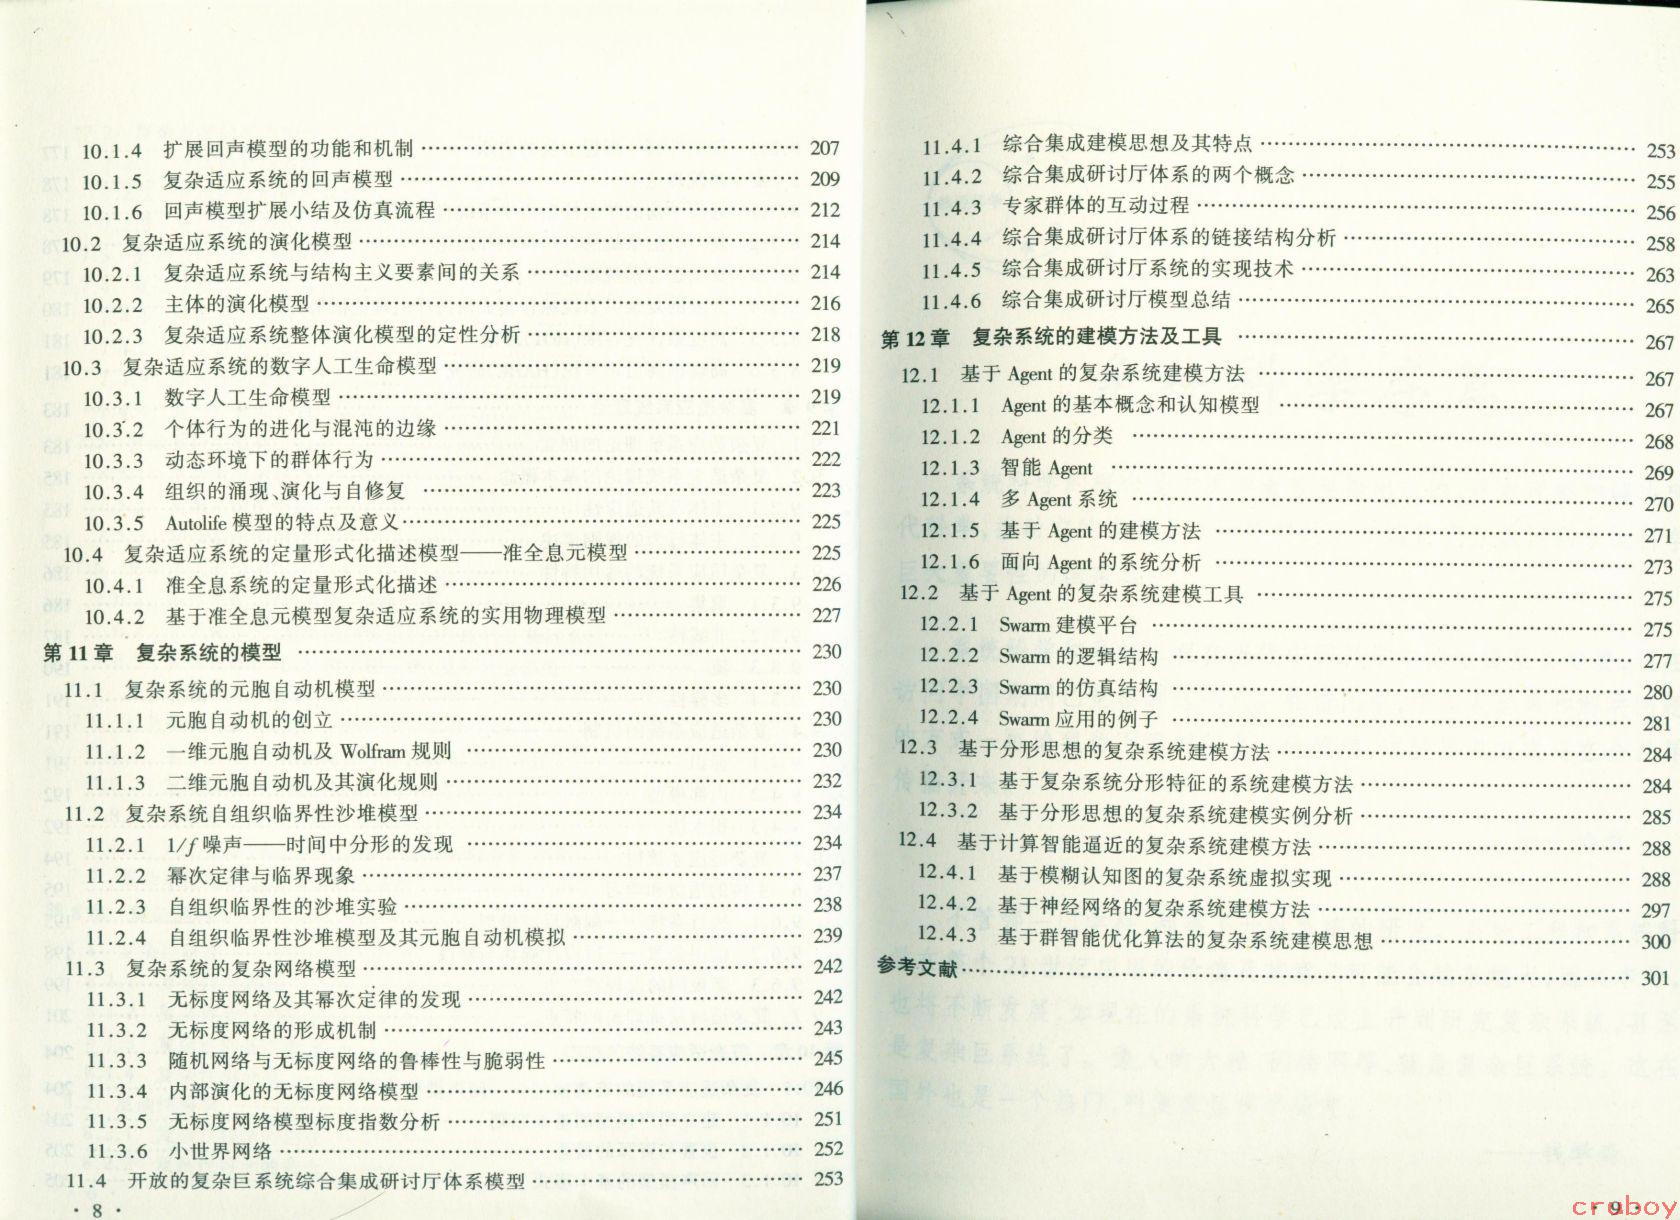 10.1.4 扩展回声模型的功能和机制 …… 207
10.1.5 复杂适应系统的回声模型 …… 209
10.1.6 回声模型扩展小结及仿真流程 …… 212
10.2 复杂适应系统的演化模型 …… 214
10.2.1 复杂适应系统与结构主义要素间的关系 …… 214
10.2.2 主体的演化模型 …… 216
10.2.3 复杂适应系统整体演化模型的定性分析 …… 218
10.3 复杂适应系统的数字人工生命模型 …… 219
10.3.1 数字人工生命模型 …… 219
10.3.2 个体行为的进化与混沌的边缘 …… 221
10.3.3 动态环境下的群体行为 …… 222
10.3.4 组织的涌现、演化与自修复 …… 223
10.3.5 Autolife 模型的特点及意义 …… 225
10.4 复杂适应系统的定量形式化描述模型——准全息元模型 …… 225
10.4.1 准全息系统的定量形式化描述 …… 226
10.4.2 基于准全息元模型复杂适应系统的实用物理模型 …… 227
第 11 章 复杂系统的模型 …… 230
11.1 复杂系统的元胞自动机模型 …… 230
11.1.1 元胞自动机的创立 …… 230
11.1.2 一维元胞自动机及 Wolfram 规则 …… 230
11.1.3 二维元胞自动机及其演化规则 …… 232
11.2 复杂系统自组织临界性沙堆模型 …… 234
11.2.1 1/f 噪声——时间中分形的发现 …… 234
11.2.2 幂次定律与临界现象 …… 237
11.2.3 自组织临界性的沙堆实验 …… 238
11.2.4 自组织临界性沙堆模型及其元胞自动机模拟 …… 239
11.3 复杂系统的复杂网络模型 …… 242
11.3.1 无标度网络及其幂次定律的发现 …… 242
11.3.2 无标度网络的形成机制 …… 243
11.3.3 随机网络与无标度网络的鲁棒性与脆弱性 …… 245
11.3.4 内部演化的无标度网络模型 …… 246
11.3.5 无标度网络模型标度指数分析 …… 251
11.3.6 小世界网络 …… 252
11.4 开放的复杂巨系统综合集成研讨厅体系模型 …… 253
· 8 ·
11.4.1 综合集成建模思想及其特点 …… 253
11.4.2 综合集成研讨厅体系的两个概念 …… 255
11.4.3 专家群体的互动过程 …… 256
11.4.4 综合集成研讨厅体系的链接结构分析 …… 258
11.4.5 综合集成研讨厅系统的实现技术 …… 263
11.4.6 综合集成研讨厅模型总结 …… 265
第 12 章 复杂系统的建模方法及工具 …… 267
12.1 基于 Agent 的复杂系统建模方法 …… 267
12.1.1 Agent 的基本概念和认知模型 …… 267
12.1.2 Agent 的分类 …… 268
12.1.3 智能 Agent …… 269
12.1.4 多 Agent 系统 …… 270
12.1.5 基于 Agent 的建模方法 …… 271
12.1.6 面向 Agent 的系统分析 …… 273
12.2 基于 Agent 的复杂系统建模工具 …… 275
12.2.1 Swarm 建模平台 …… 275
12.2.2 Swarm 的逻辑结构 …… 277
12.2.3 Swarm 的仿真结构 …… 280
12.2.4 Swarm 应用的例子 …… 281
12.3 基于分形思想的复杂系统建模方法 …… 284
12.3.1 基于复杂系统分形特征的系统建模方法 …… 284
12.3.2 基于分形思想的复杂系统建模实例分析 …… 285
12.4 基于计算智能逼近的复杂系统建模方法 …… 288
12.4.1 基于模糊认知图的复杂系统虚拟实现 …… 288
12.4.2 基于神经网络的复杂系统建模方法 …… 297
12.4.3 基于群智能优化算法的复杂系统建模思想 …… 300
参考文献 …… 301
· 9 ·
cruboy